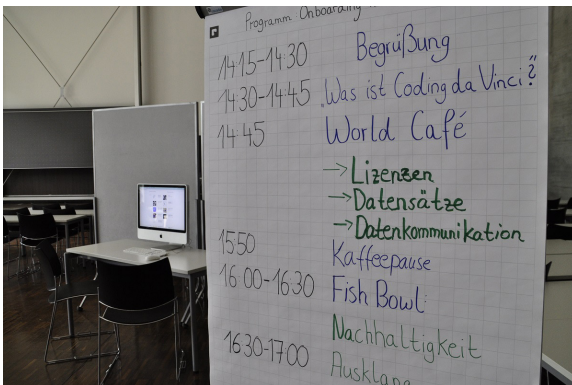 Programm Onboarding
14:15-14:30 Begrüßung
14:30-14:45 „Was ist Coding da Vinci?"
14:45 World Café
→ Lizenzen
→ Datensätze
→ Datenkommunikation
15:50 Kaffeepause
16:00-16:30 Fish Bowl:
Nachhaltigkeit
16:30-17:00 Ausklang